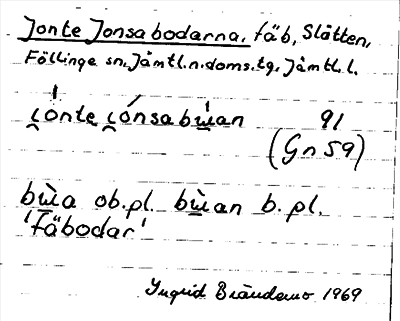 Jonte Jonsabodarna, fäb, Slåtten,
Föllinge sn, Jämtl.n.doms.tg, Jämtl.l.
çònte çónsabẁan 91
(Gn 59)
bẁa ob.pl. bẁan b.pl.
'Fäbodar'
Ingrid 1969